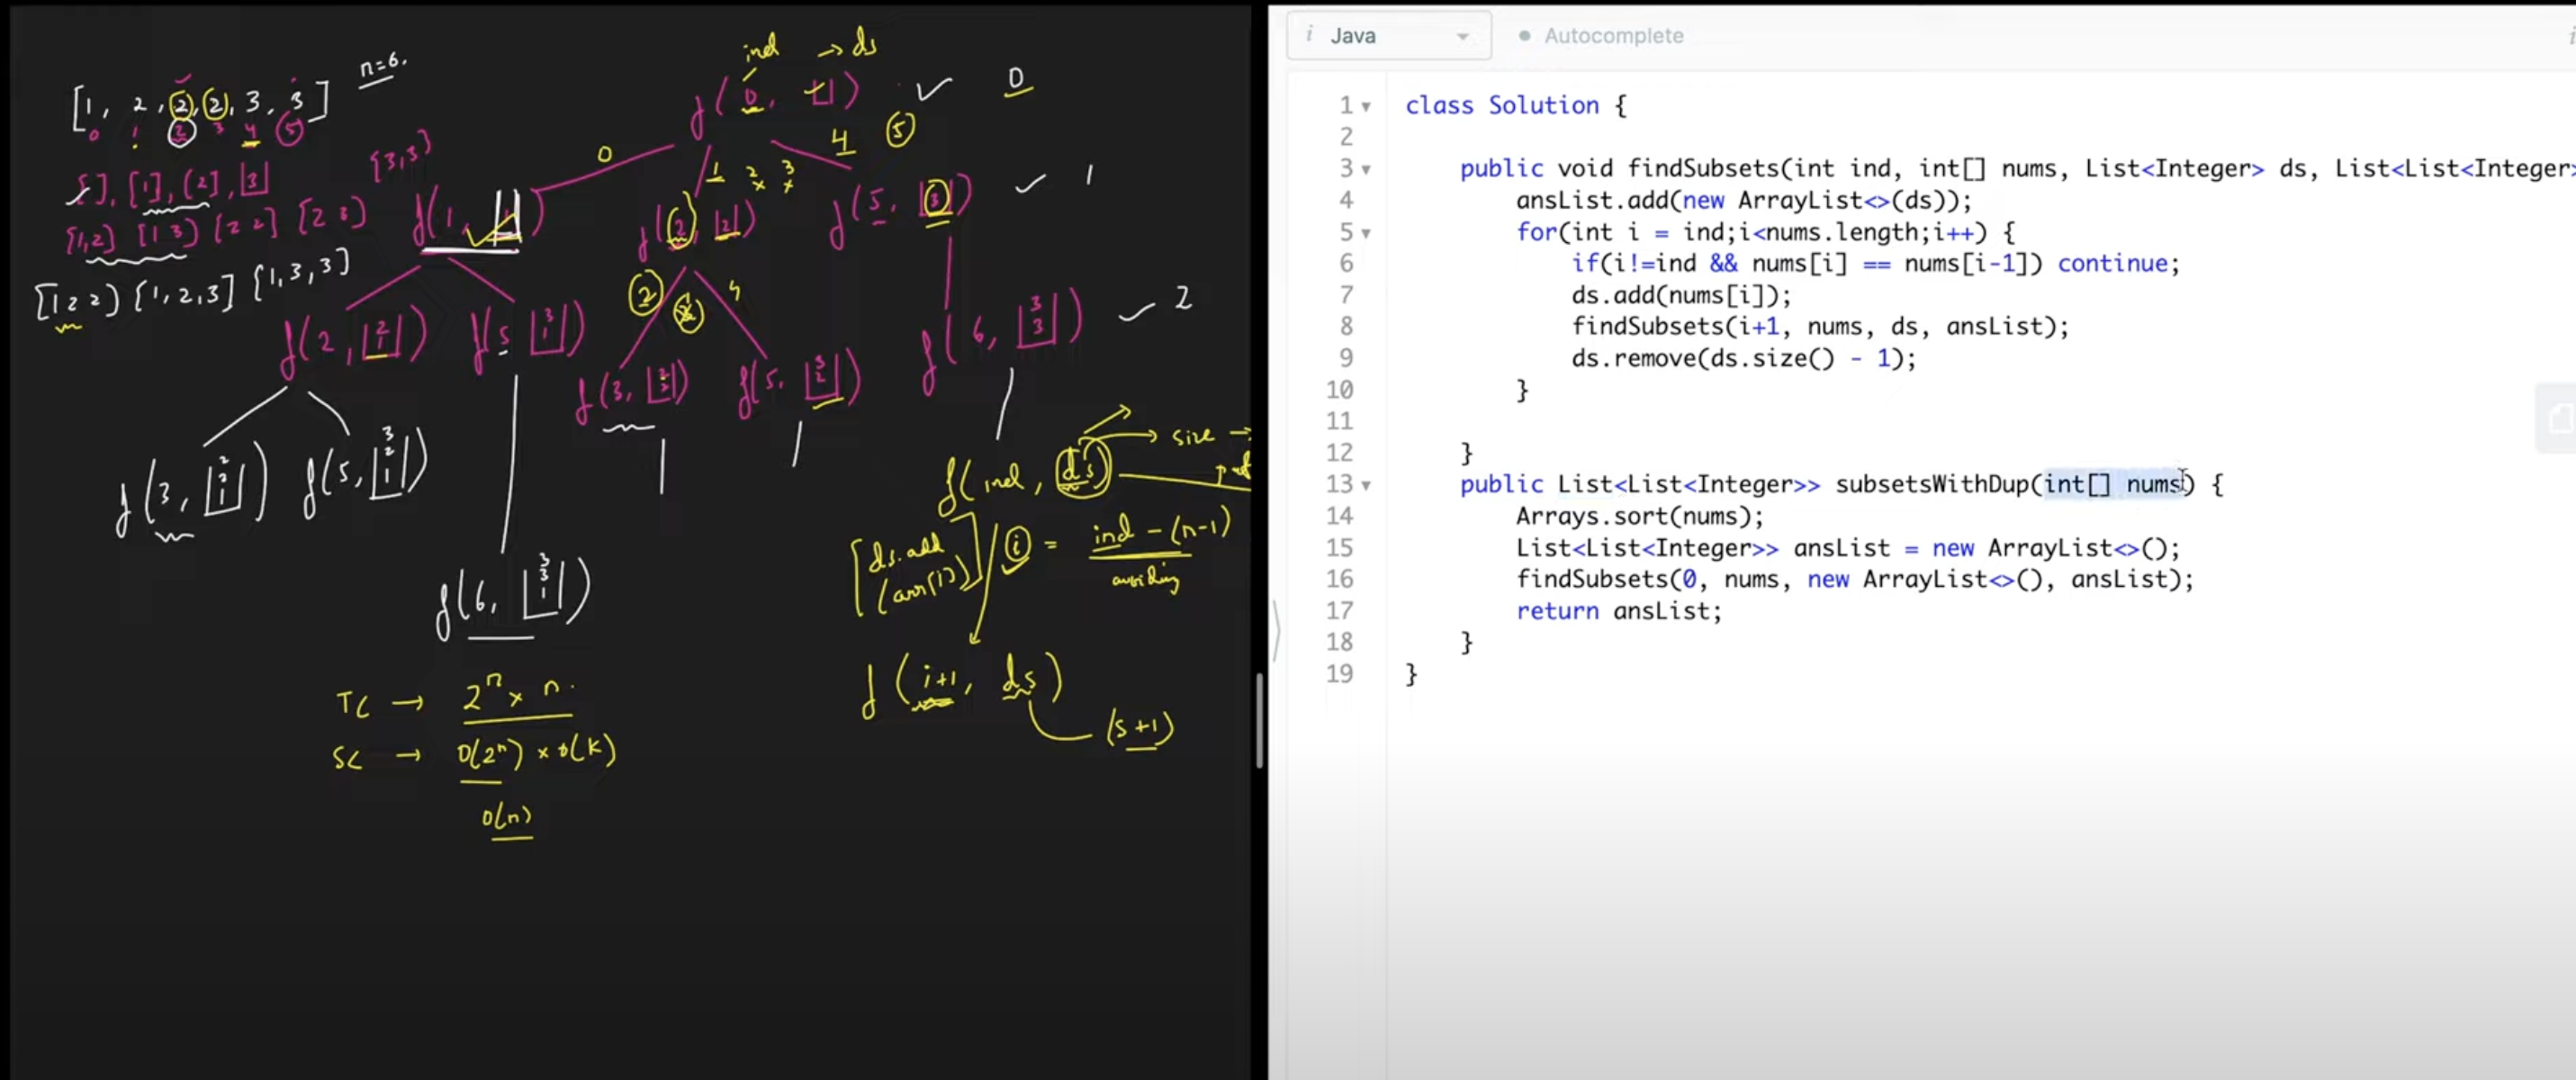 ind → ds
n=6.
[1, 2, 2, 2, 3, 3]
0 1 2 3 4 5
f(0, [])
0
4 5
0
1 2 3
x x
[3,3]
[], [1], [2], [3]
[1,2] [1 3] [2 2] [2 3]
[1 2 2] [1,2,3] [1,3,3]
f(1, [1])
f(2, [2])
f(5, [3])
1
2
4
f(2, 2 1)
f(5 3 1)
f(3, 2 2)
f(5, 3 2)
f(6, 3 3)
2
f(3, 2 2 1)
f(5, 3 2 1)
f(6, 3 3 1)
f(ind, ds)
→ size →
[ds.add
(arr[i])]
i = ind - (n-1)
avoiding
f(i+1, ds)
(s+1)
TC → 2ⁿ x n.
SC → O(2ⁿ) x O(k)
O(n)
i Java
Autocomplete
1 class Solution {
2
3 public void findSubsets(int ind, int[] nums, List<Integer> ds, List<List<Integer>
4 ansList.add(new ArrayList<>(ds));
5 for(int i = ind;i<nums.length;i++) {
6 if(i!=ind && nums[i] == nums[i-1]) continue;
7 ds.add(nums[i]);
8 findSubsets(i+1, nums, ds, ansList);
9 ds.remove(ds.size() - 1);
10 }
11
12 }
13 public List<List<Integer>> subsetsWithDup(int[] nums) {
14 Arrays.sort(nums);
15 List<List<Integer>> ansList = new ArrayList<>();
16 findSubsets(0, nums, new ArrayList<>(), ansList);
17 return ansList;
18 }
19 }